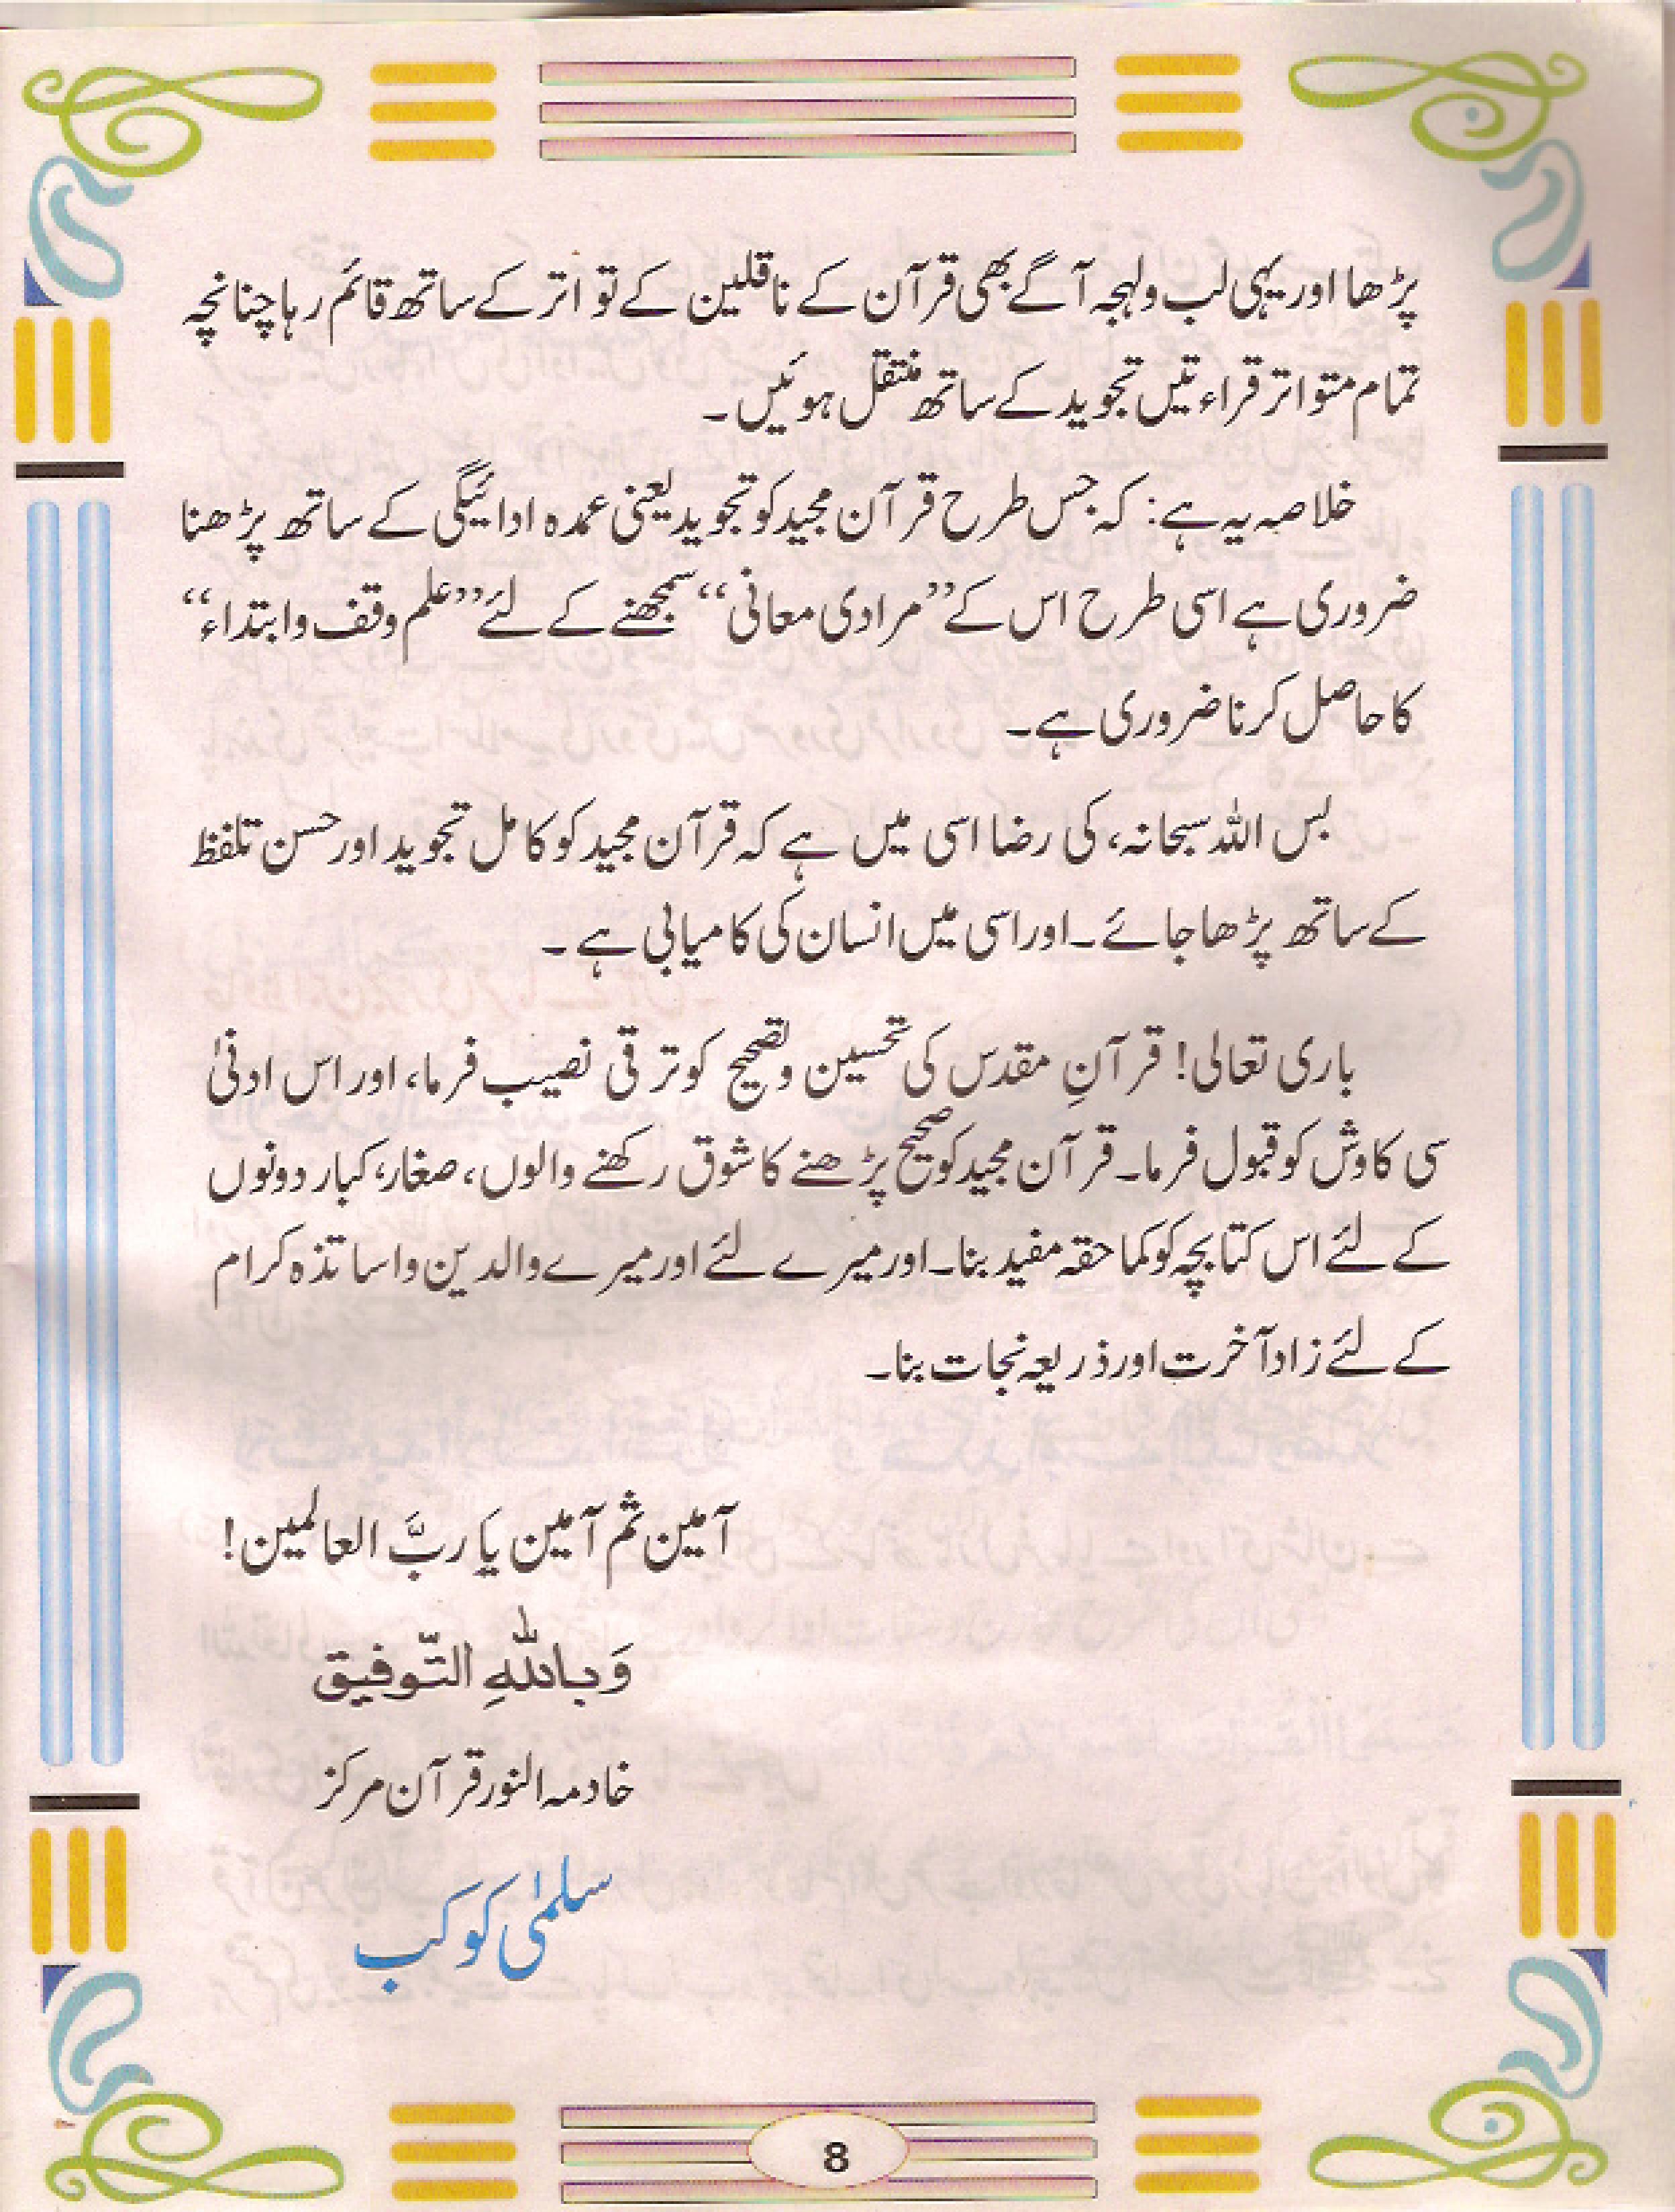 پڑھا اور یہی لب ولہجہ آگے بھی قرآن کے ناقلین کے تواتر کے ساتھ قائم رہا چنانچہ
تمام متواتر قراءتیں تجوید کے ساتھ منتقل ہوئیں۔
خلاصہ یہ ہے: کہ جس طرح قرآن مجید کو تجوید یعنی عمدہ ادائیگی کے ساتھ پڑھنا
ضروری ہے اسی طرح اس کے ”مرادی معانی“ سمجھنے کے لئے ”علم وقف وابتداء“
کا حاصل کرنا ضروری ہے۔
بس اللہ سبحانہ، کی رضا اسی میں ہے کہ قرآن مجید کو کامل تجوید اور حسن تلفظ
کے ساتھ پڑھا جائے۔ اور اسی میں انسان کی کامیابی ہے۔
باری تعالی! قرآنِ مقدس کی تحسین وتصحیح کو ترقی نصیب فرما، اور اس ادنیٰ
سی کاوش کو قبول فرما۔ قرآن مجید کو صحیح پڑھنے کا شوق رکھنے والوں، صغار، کبار دونوں
کے لئے اس کتابچہ کو کما حقہ مفید بنا۔ اور میرے لئے اور میرے والدین واساتذہ کرام
کے لئے زاد آخرت اور ذریعہ نجات بنا۔
آمین ثم آمین یَا ربَّ العالمین!
وَبِاللّٰہِ التّوفیق
خادمہ النور قرآن مرکز
سلمیٰ کوکب
8